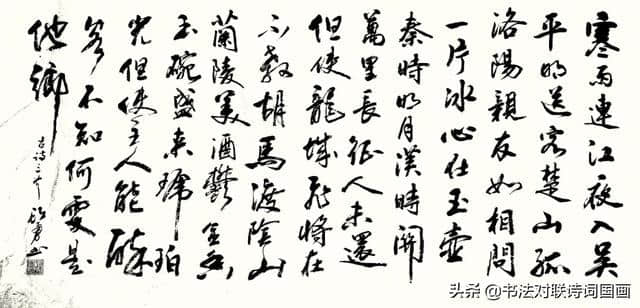 寒雨連江夜入吳
平明送客楚山孤
洛陽親友如相問
一片冰心在玉壺
秦時明月漢時關
萬里長征人未還
但使龍城飛將在
不教胡馬渡陰山
蘭陵美酒鬱金香
玉碗盛來琥珀
光但使主人能醉
客不知何處是
他鄉
古詩三首
头条 @书法对联诗词国画